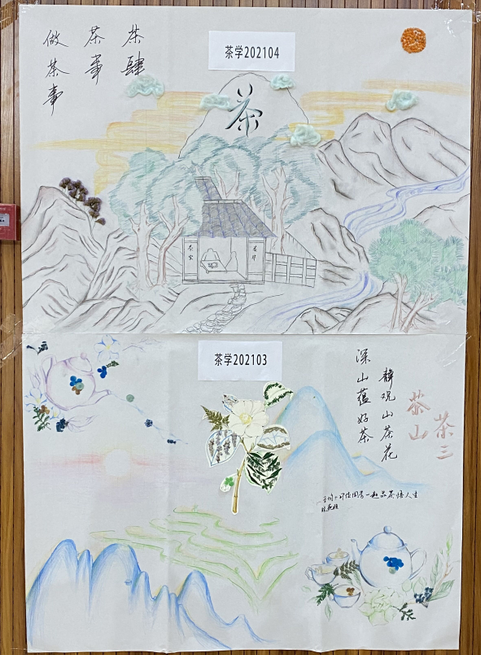 茶学202104
茶肆
茶
做茶事
茶
茶学202103
茶三
茶山
靜观山茶花
深山蕴好茶
一起品茶悟人生